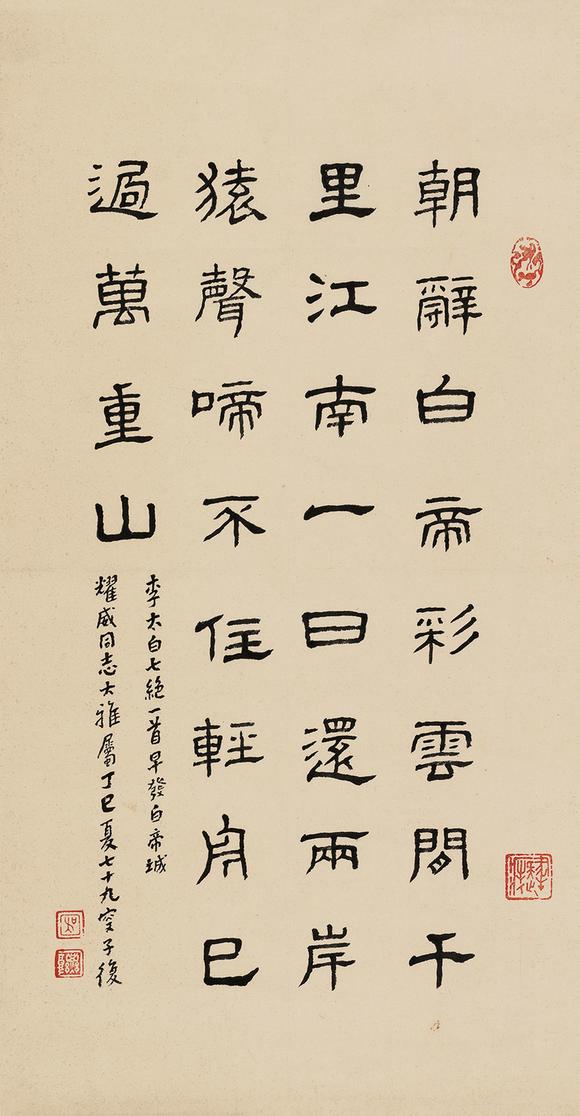 朝辭白帝彩雲間千
里江南一日還兩岸
猿聲啼不住輕舟已
過萬重山
李太白七絕一首早發白帝城
耀威同志大雅屬丁巳夏七十九叟子復